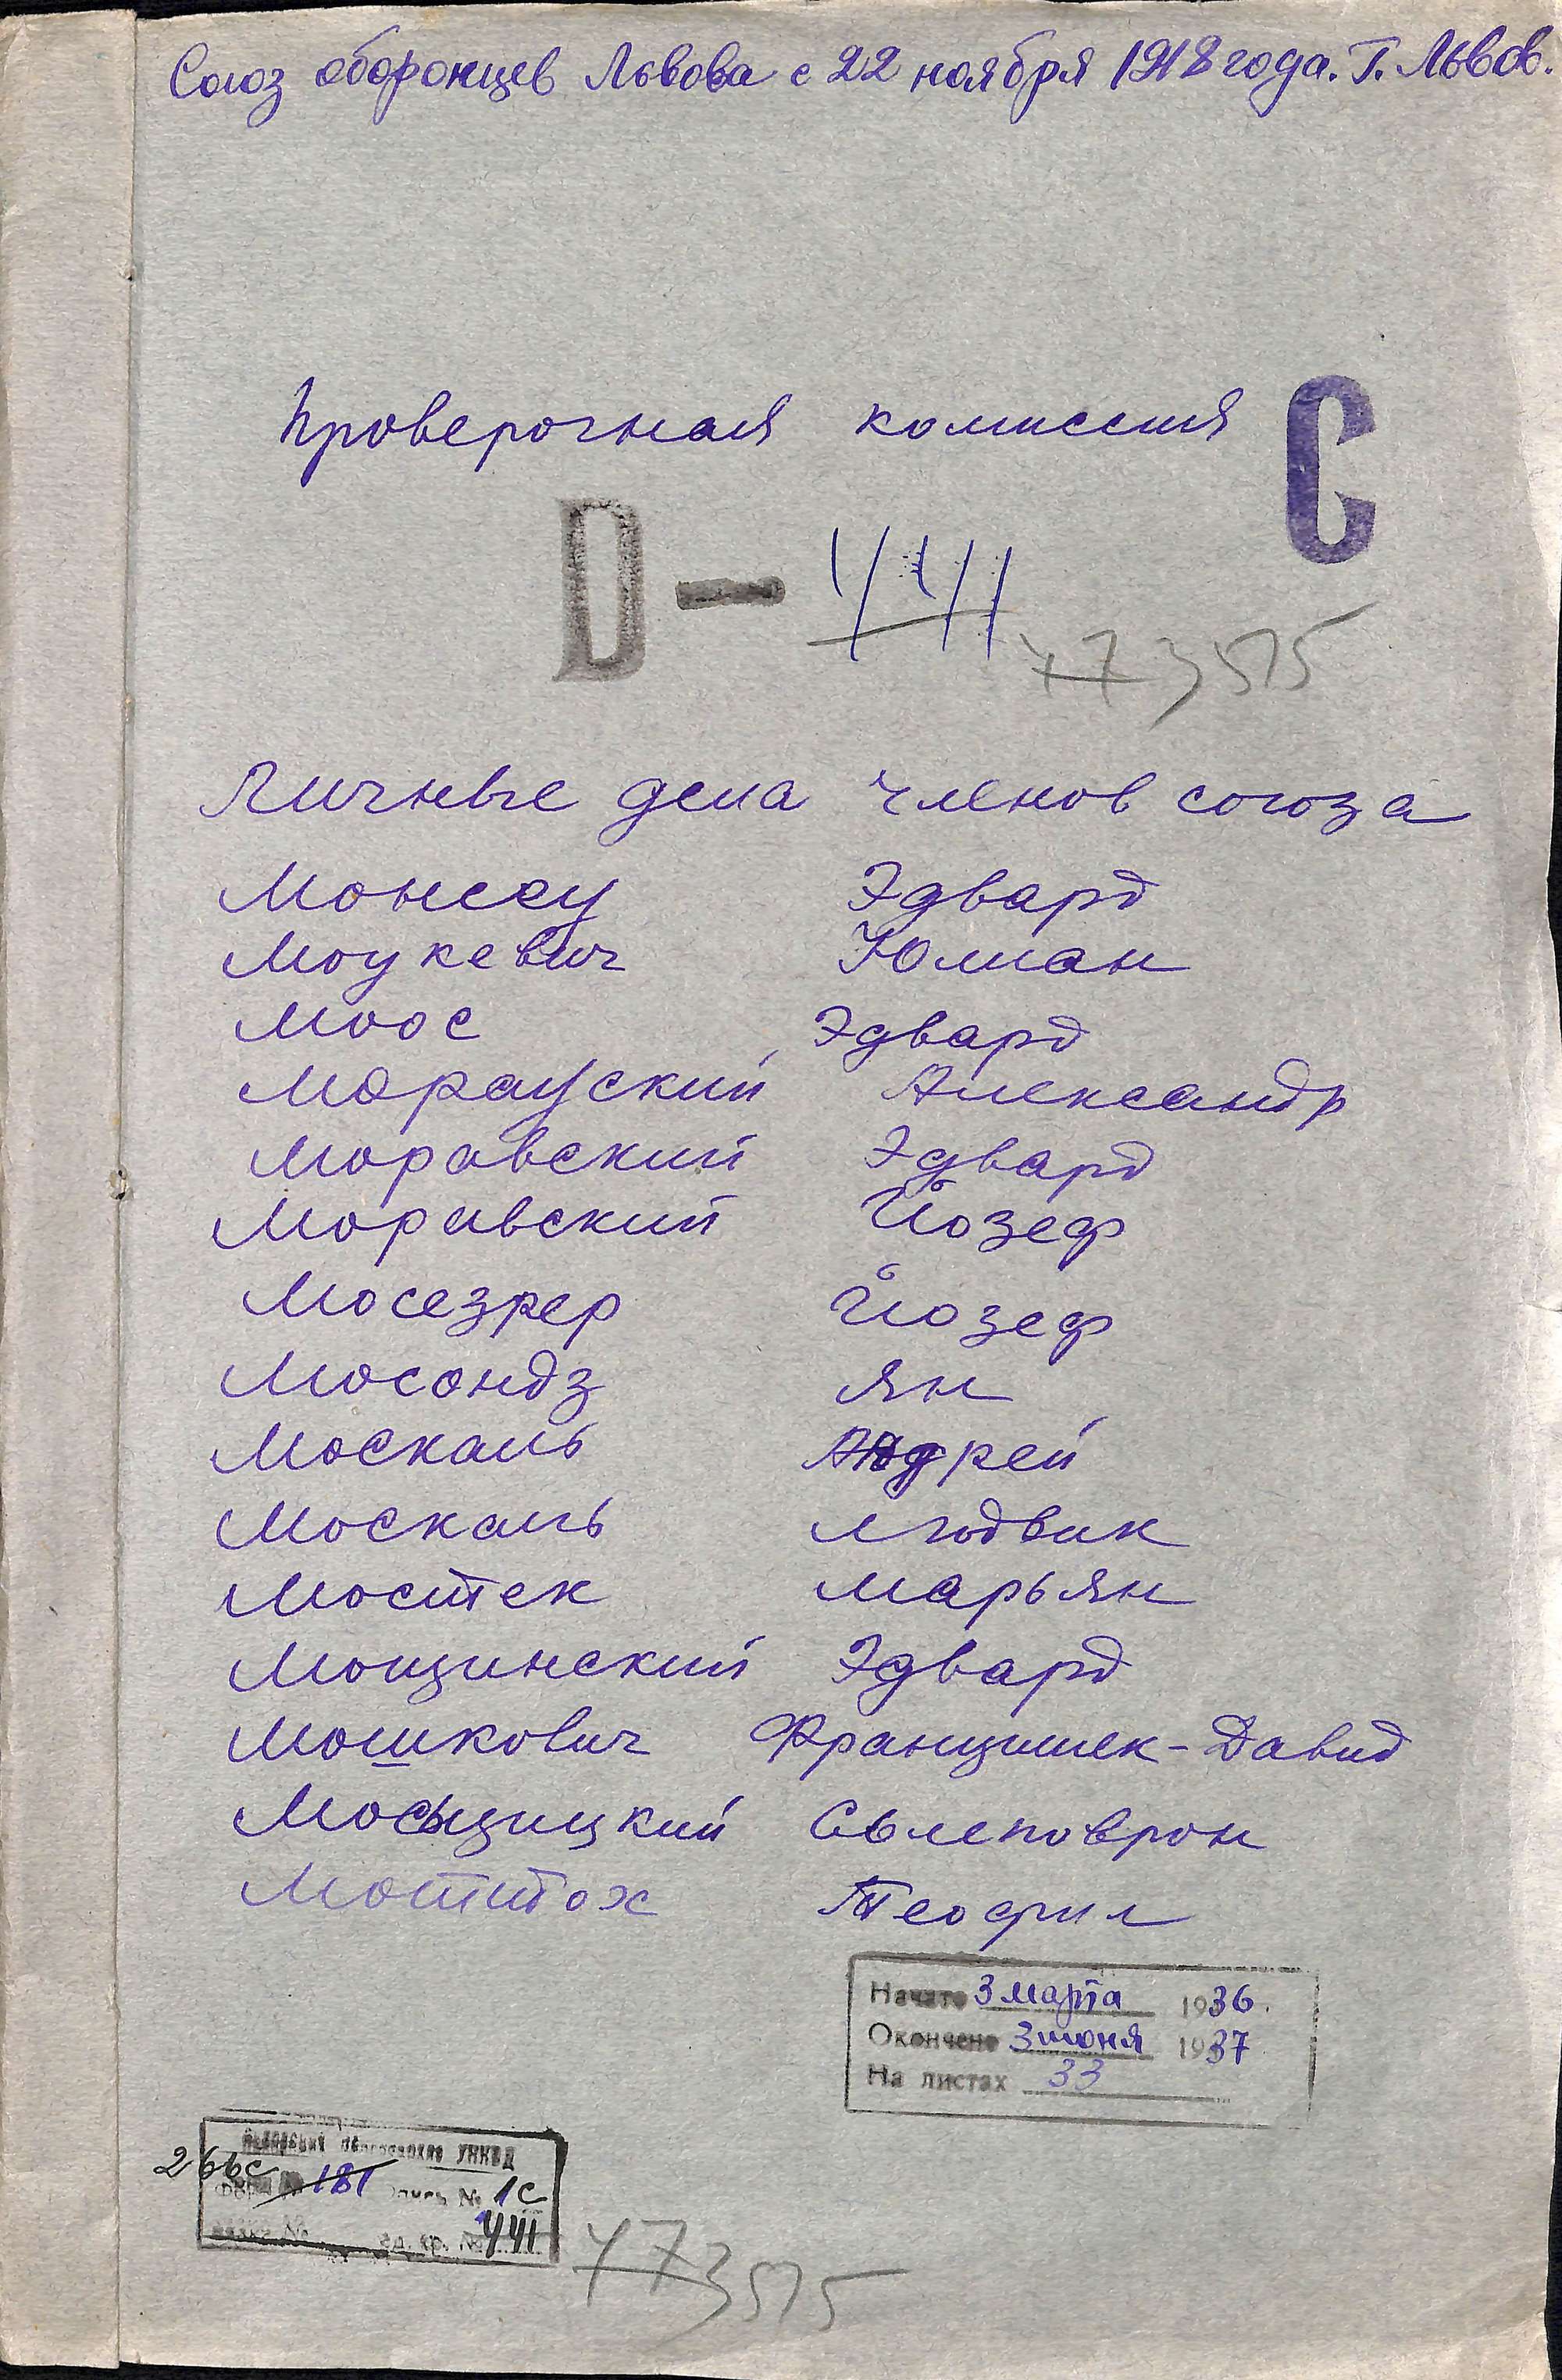 Союз оборонцев Львова с 22 ноября 1918 года. Г. Львов.
Проверочная комиссия
С
D — 441
473515
Личные дела членов союза
Эдвард
Моцкевич Юлиан
Моос Эдвард
Морауский Александр
Моравский Эдвард
Моравский Йозеф
Мосезрер Йозеф
Мосондз Ян
Москаль Андрей
Москаль Людвик
Мостек Марьян
Мощинский Эдвард
Мошкович Францишек-Давид
Мосьцицкий Сьлеповрон
Моттох Теофил
Начато 3 марта 1936.
Окончено 3 июня 1937
На листах 33
УНКВД
266с
Фонд № 181 опись № 1с
ед. хр. № 441
473515